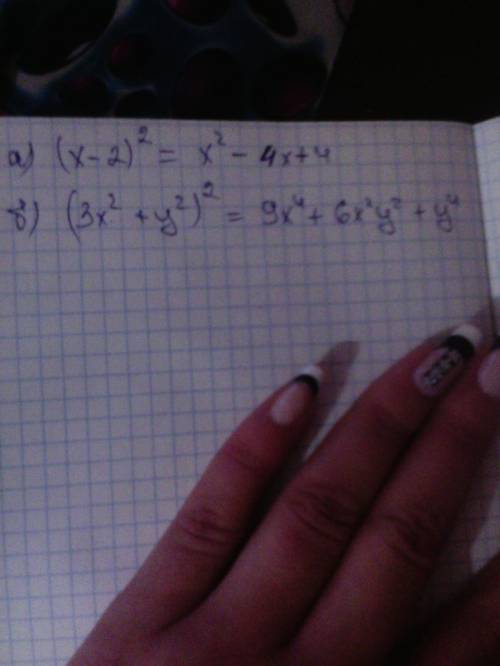 а) (x-2)² = x² - 4x+4
б) (3x² + y²)² = 9x⁴ + 6x²y² + y⁴